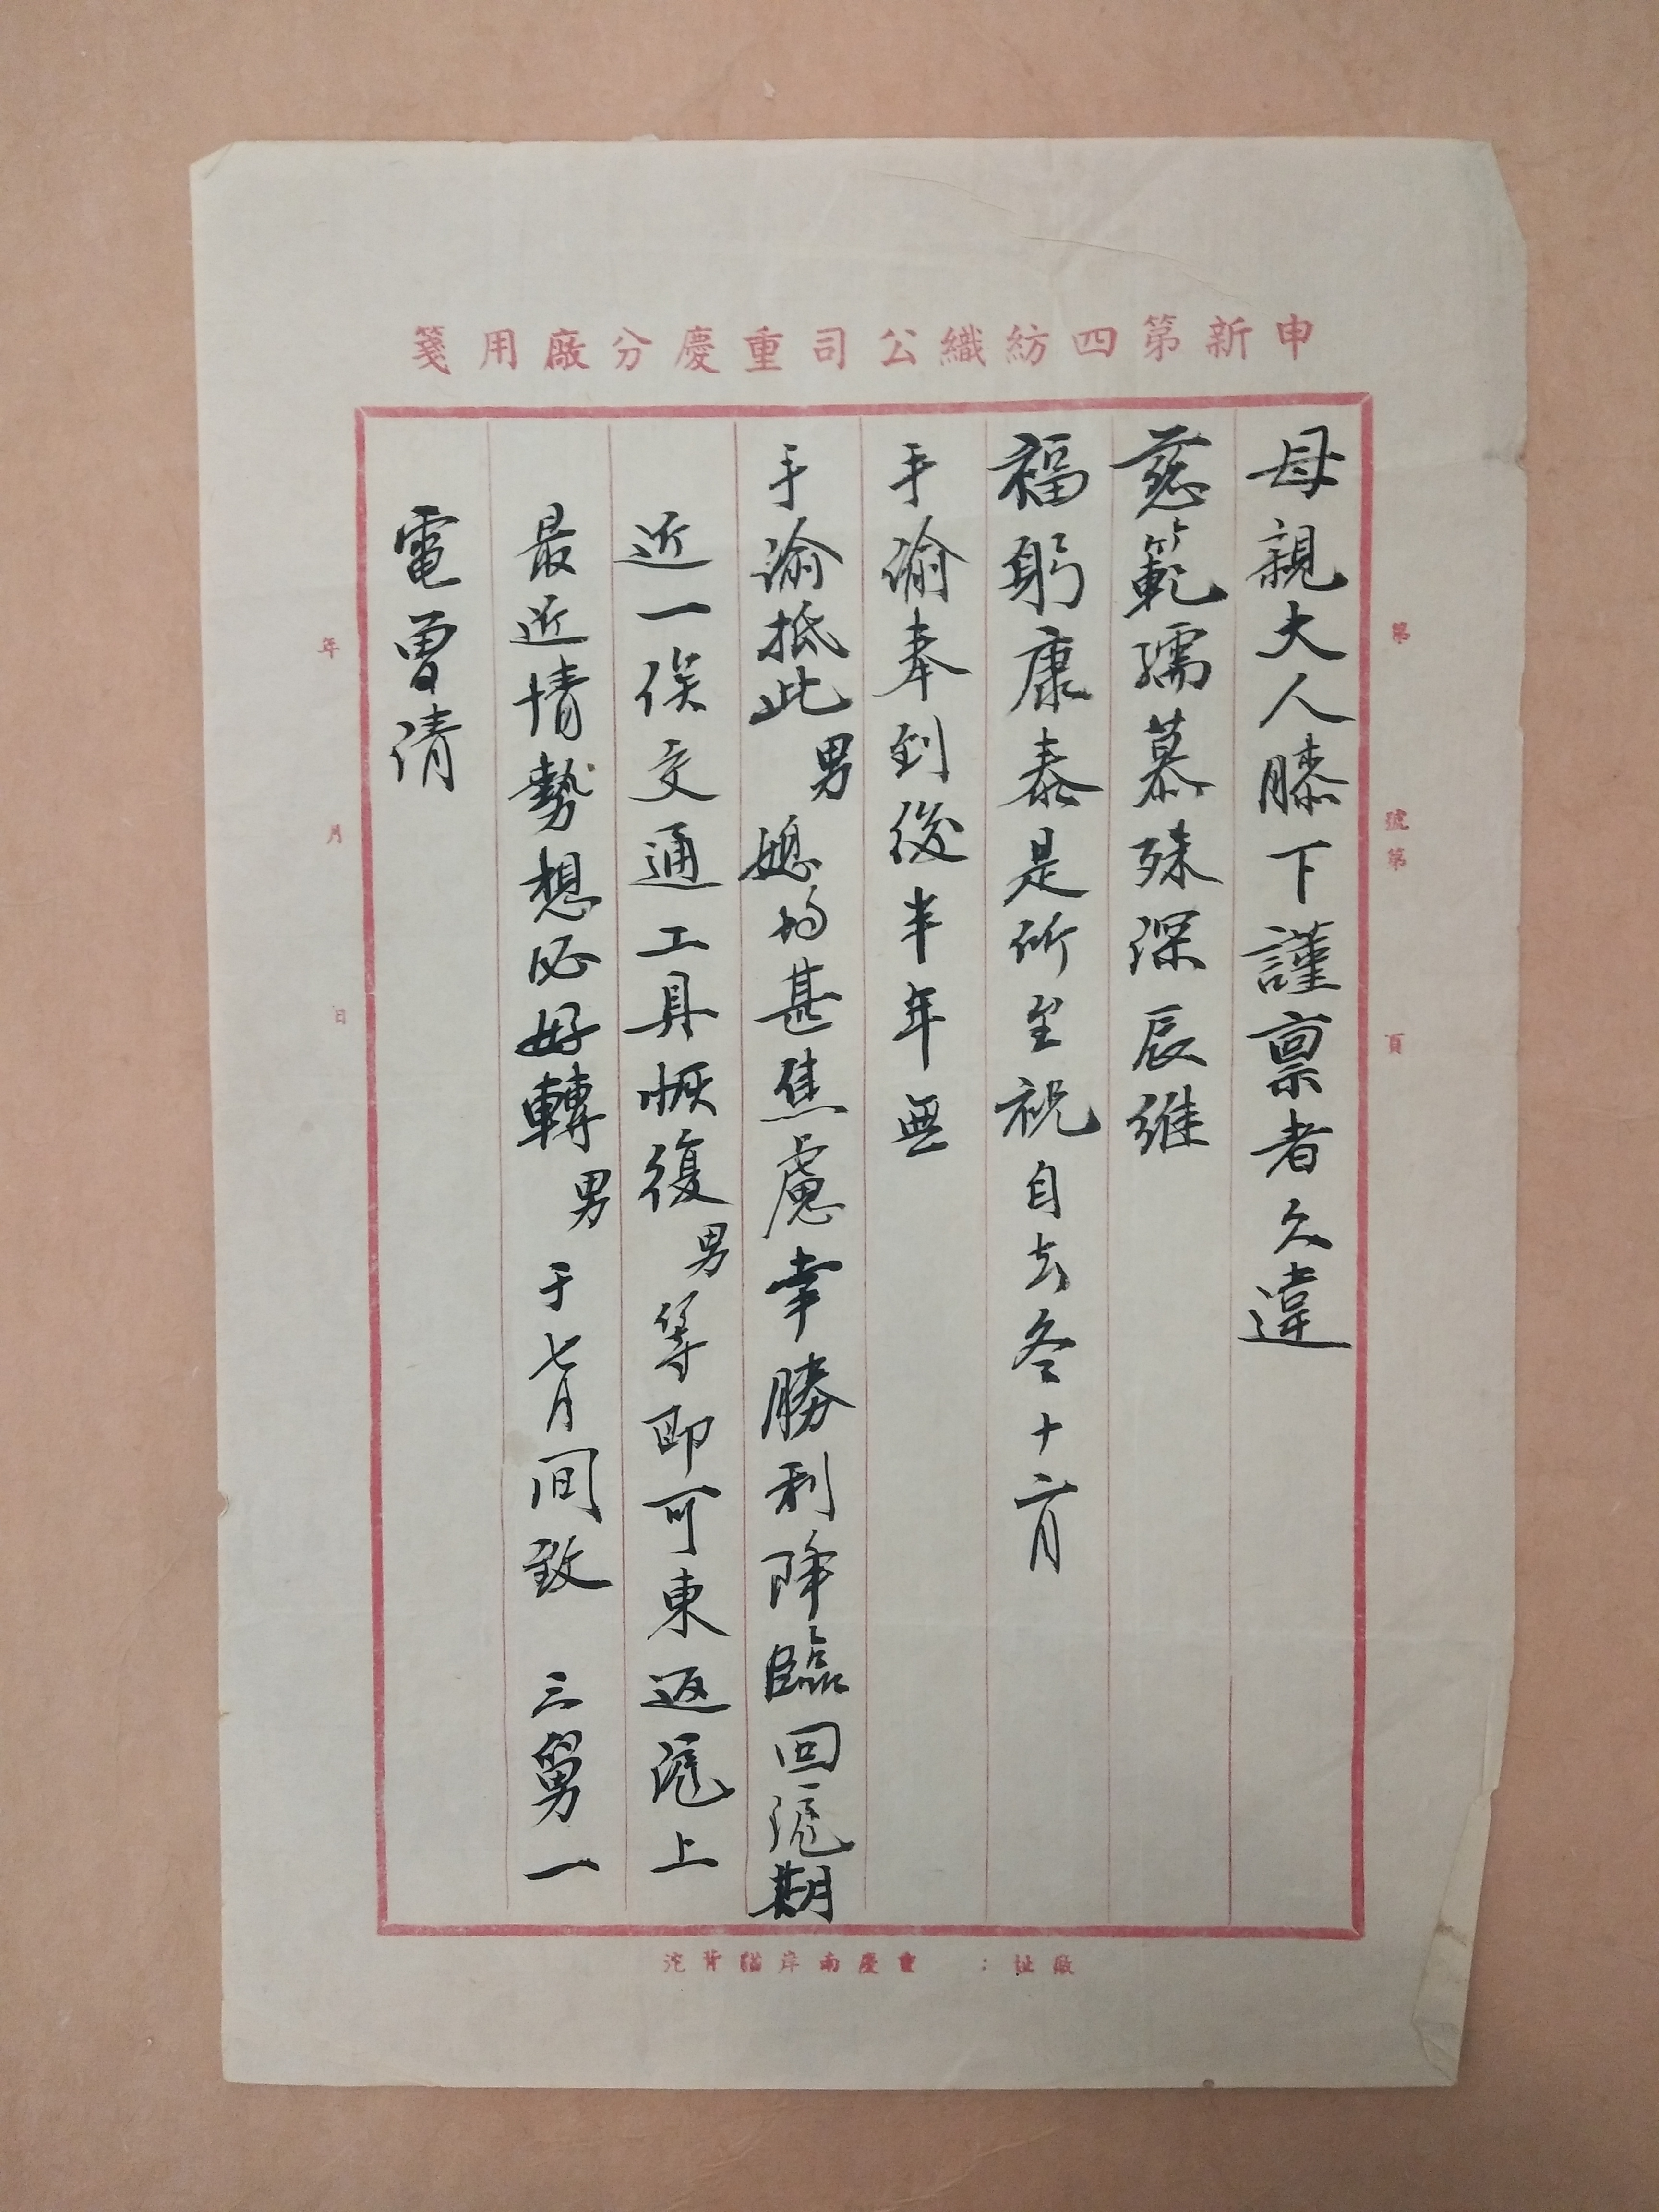 申新第四紡織公司重慶分廠用箋
第 號第 頁
母親大人膝下謹禀者久違
慈範孺慕殊深辰維
福躬康泰是所至祝自去冬十二月
手諭奉到後半年無
手諭抵此男媳均甚焦慮幸勝利降臨回滬期
近一俟交通工具恢復男等即可東返滬上
最近情勢想必好轉男于七月间致 三舅一
電曾请
年 月 日
廠址：重慶南岸貓背沱